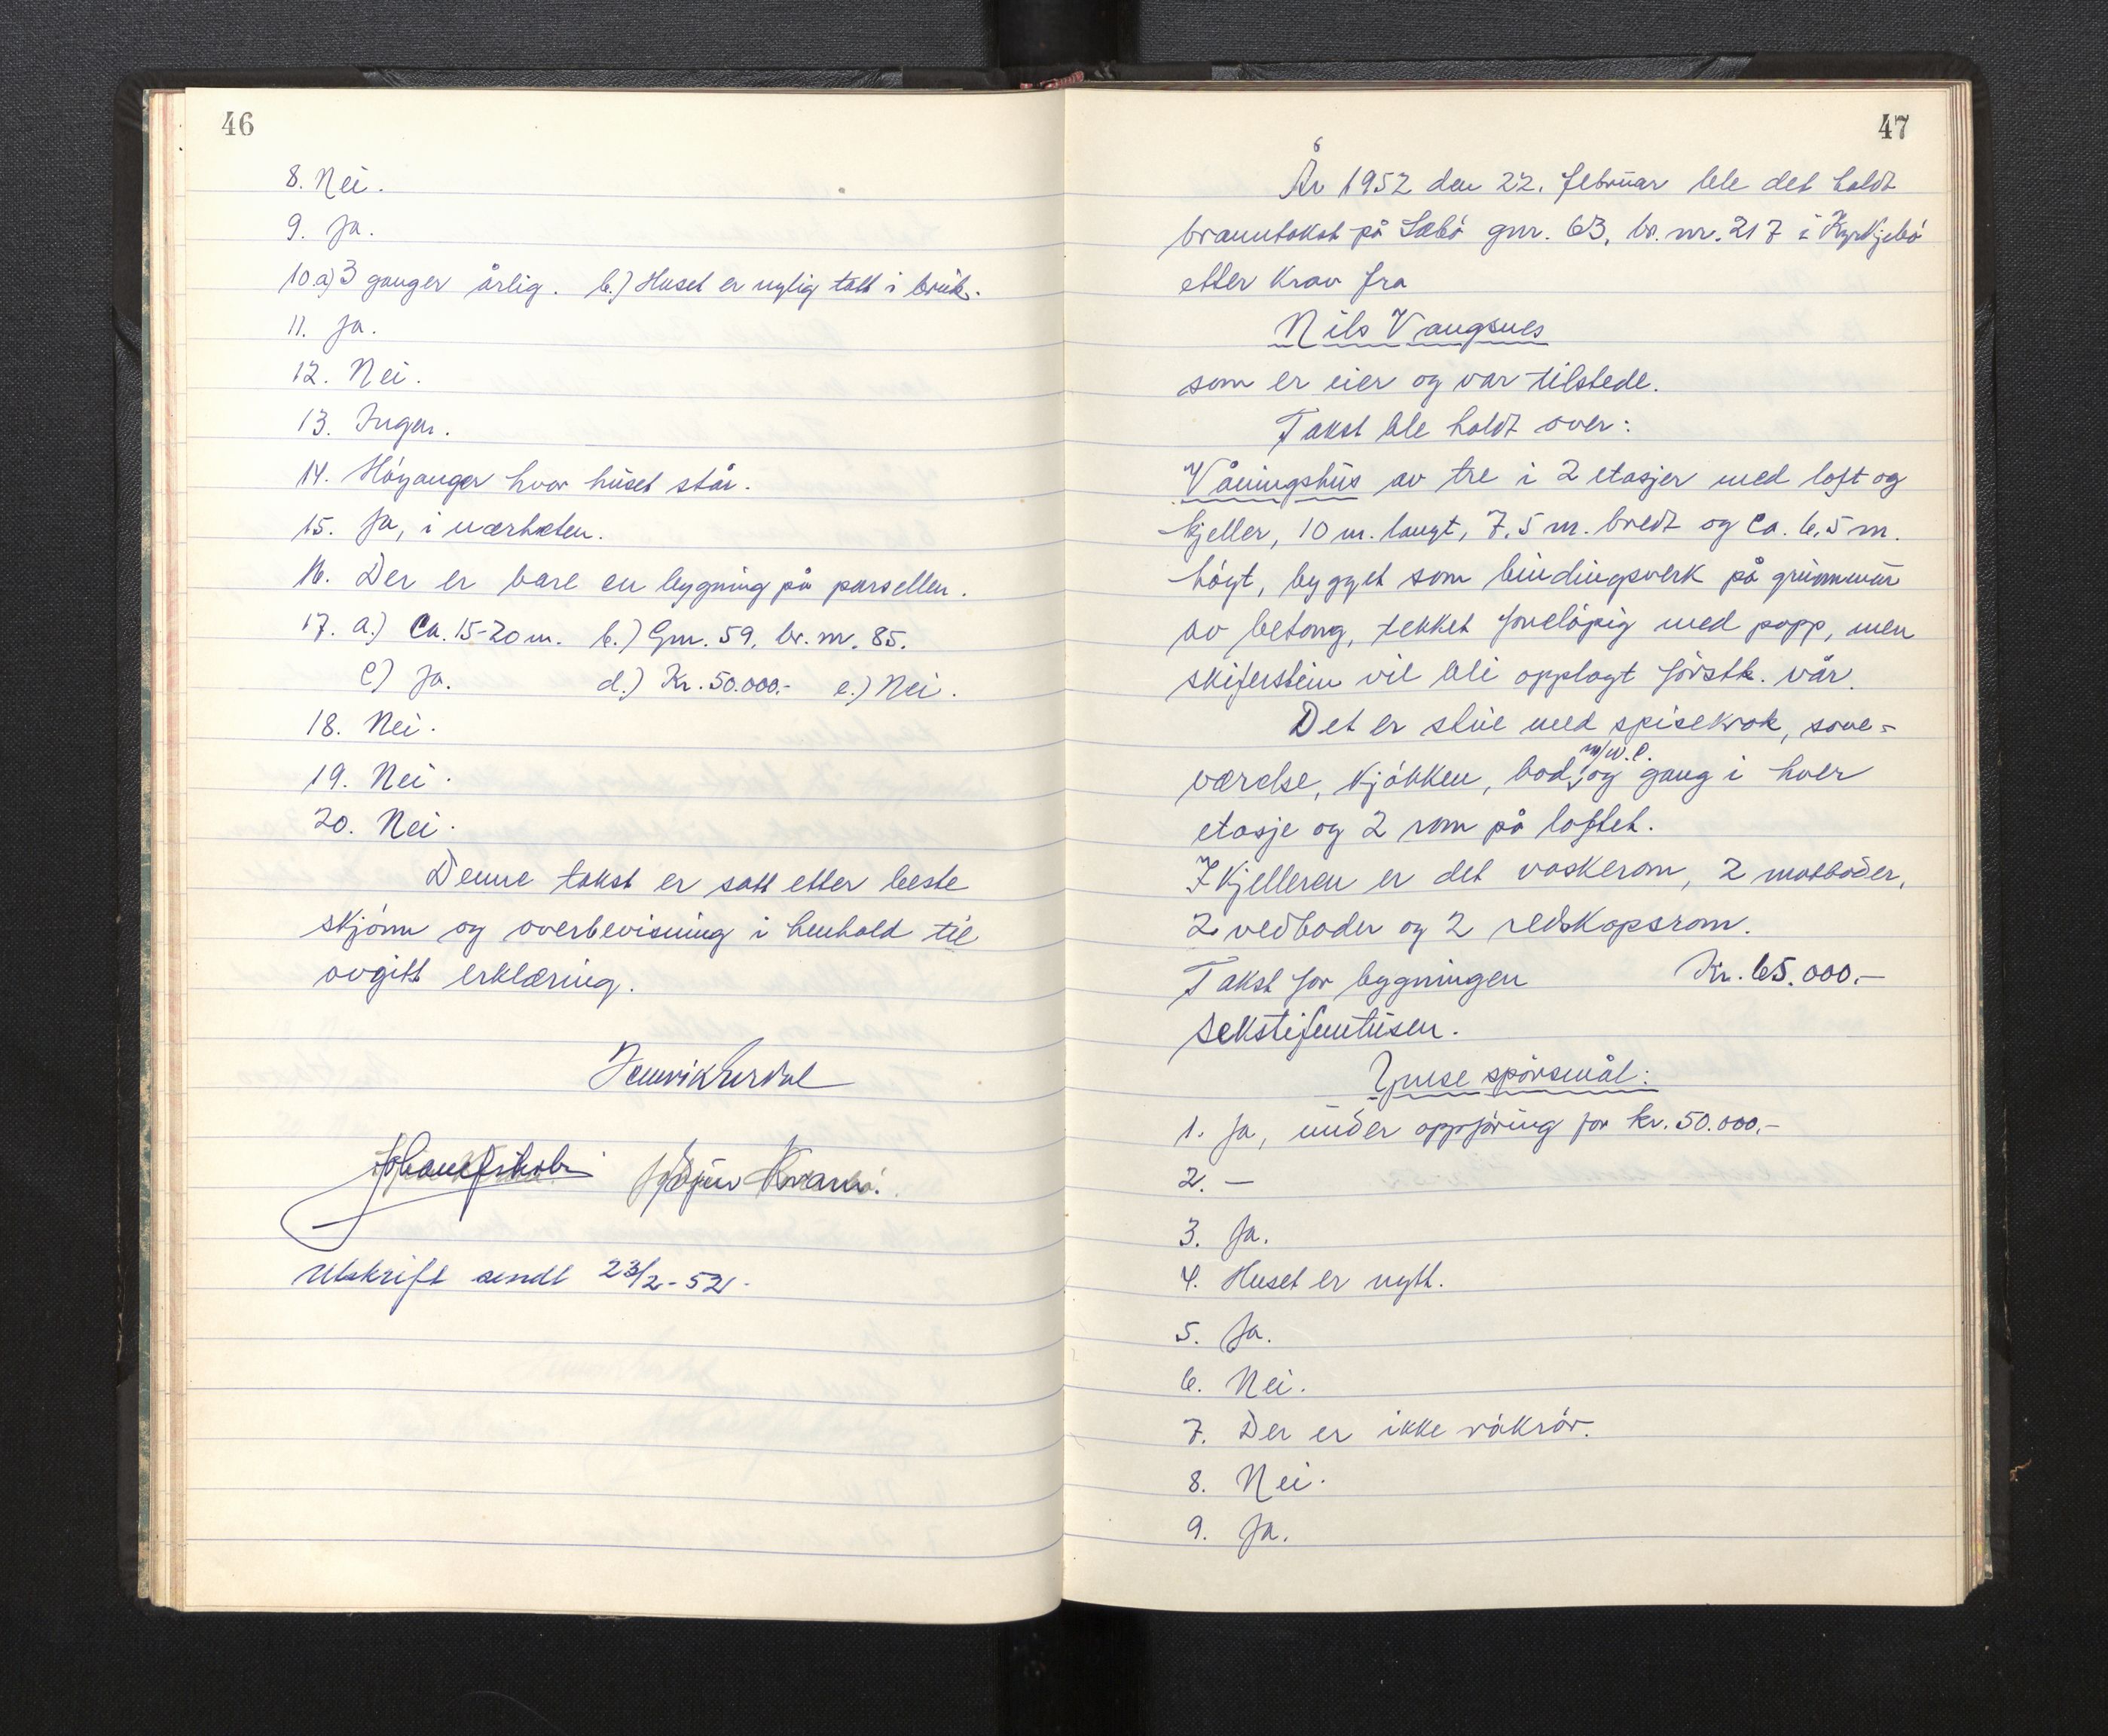 46
8. Nei.
9. Ja.
10.a) 3 ganger årlig. b.) Huset er nylig tatt i bruk.
11. Ja.
12. Nei.
13. Ingen.
14. Höyanger hvor huset står.
15. Ja, i nærheten.
16. Der er bare en bygning på parsellen.
17. a.) Ca. 15-20 m. b.) Gnr. 59, br. nr. 85.
c) Ja. d.) Kr. 50.000.- e.) Nei.
18. Nei.
19. Nei.
20. Nei.
Denne takst er satt etter beste
skjönn og overbevisning i henhold til
avgitt erklæring.
Henrik
Kvammö.
Utskrift sendt 23/2-52.
47
År 1952 den 22. februar ble det holdt
branntakst på Sæbö gnr. 63, br. nr. 217 i Kyrkjebö
etter krav fra
Nils Vangsnes
som er eier og var tilstede.
Takst ble holdt over:
Våningshus av tre i 2 etasjer med loft og
kjeller, 10 m. langt, 7,5 m. bredt og ca. 6,5 m.
högt, bygget som bindingsverk på grunnmur
av betong, tekket foreløpig med papp, men
skiferstein vil bli opplagt förstk. vår.
Det er stue med spisekrok, sove-
værelse, kjökken, bod m/w.c. og gang i hver
etasje og 2 rom på loftet.
I kjelleren er det vaskerom, 2 matboder,
2 vedboder og 2 redskapsrom.
Takst for bygningen Kr. 65.000.-
sekstifemtusen.
Ymse spörsmål:
1. Ja, under oppföring for kr. 50.000.-
2. -
3. Ja.
4. Huset er nytt.
5. Ja.
6. Nei.
7. Der er ikke råkrör.
8. Nei.
9. Ja.